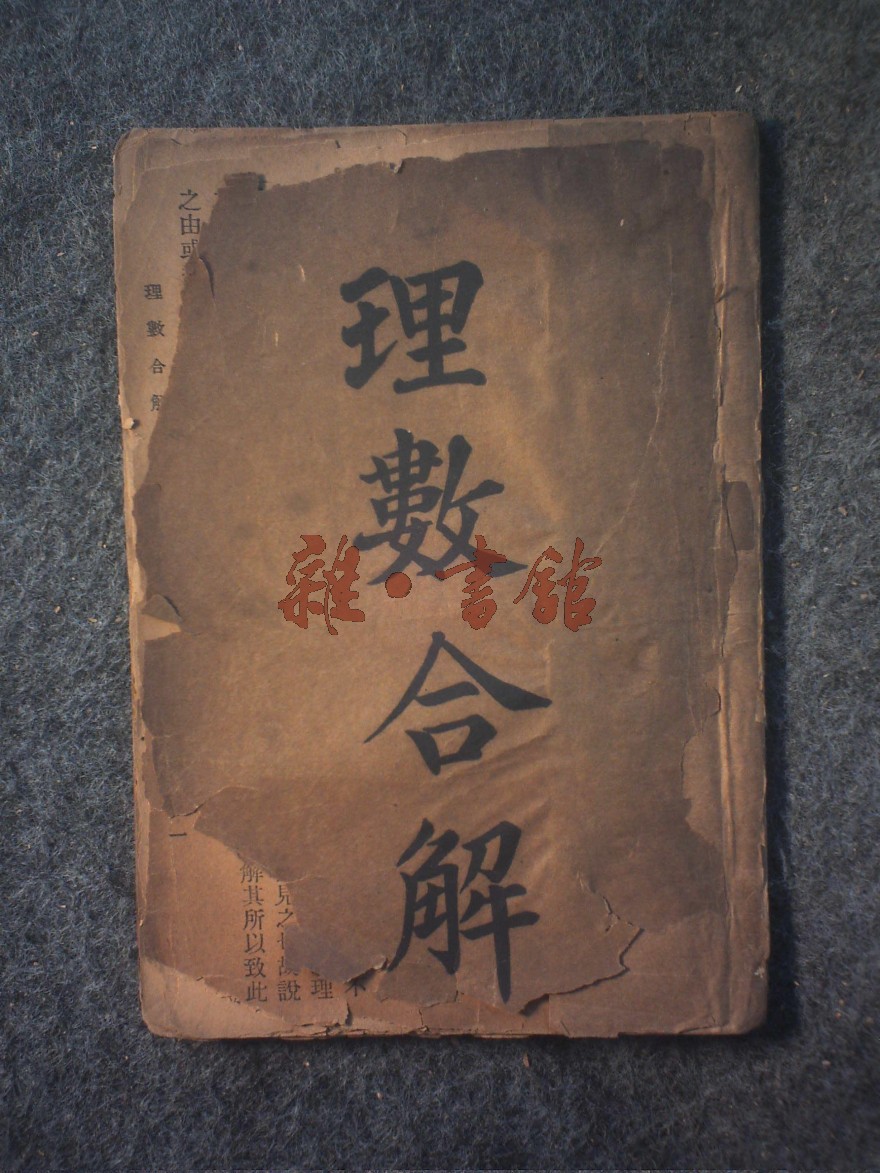 理數合解
雜·書館
之由或
理數合解
一
理
見之
說
解其所以致此